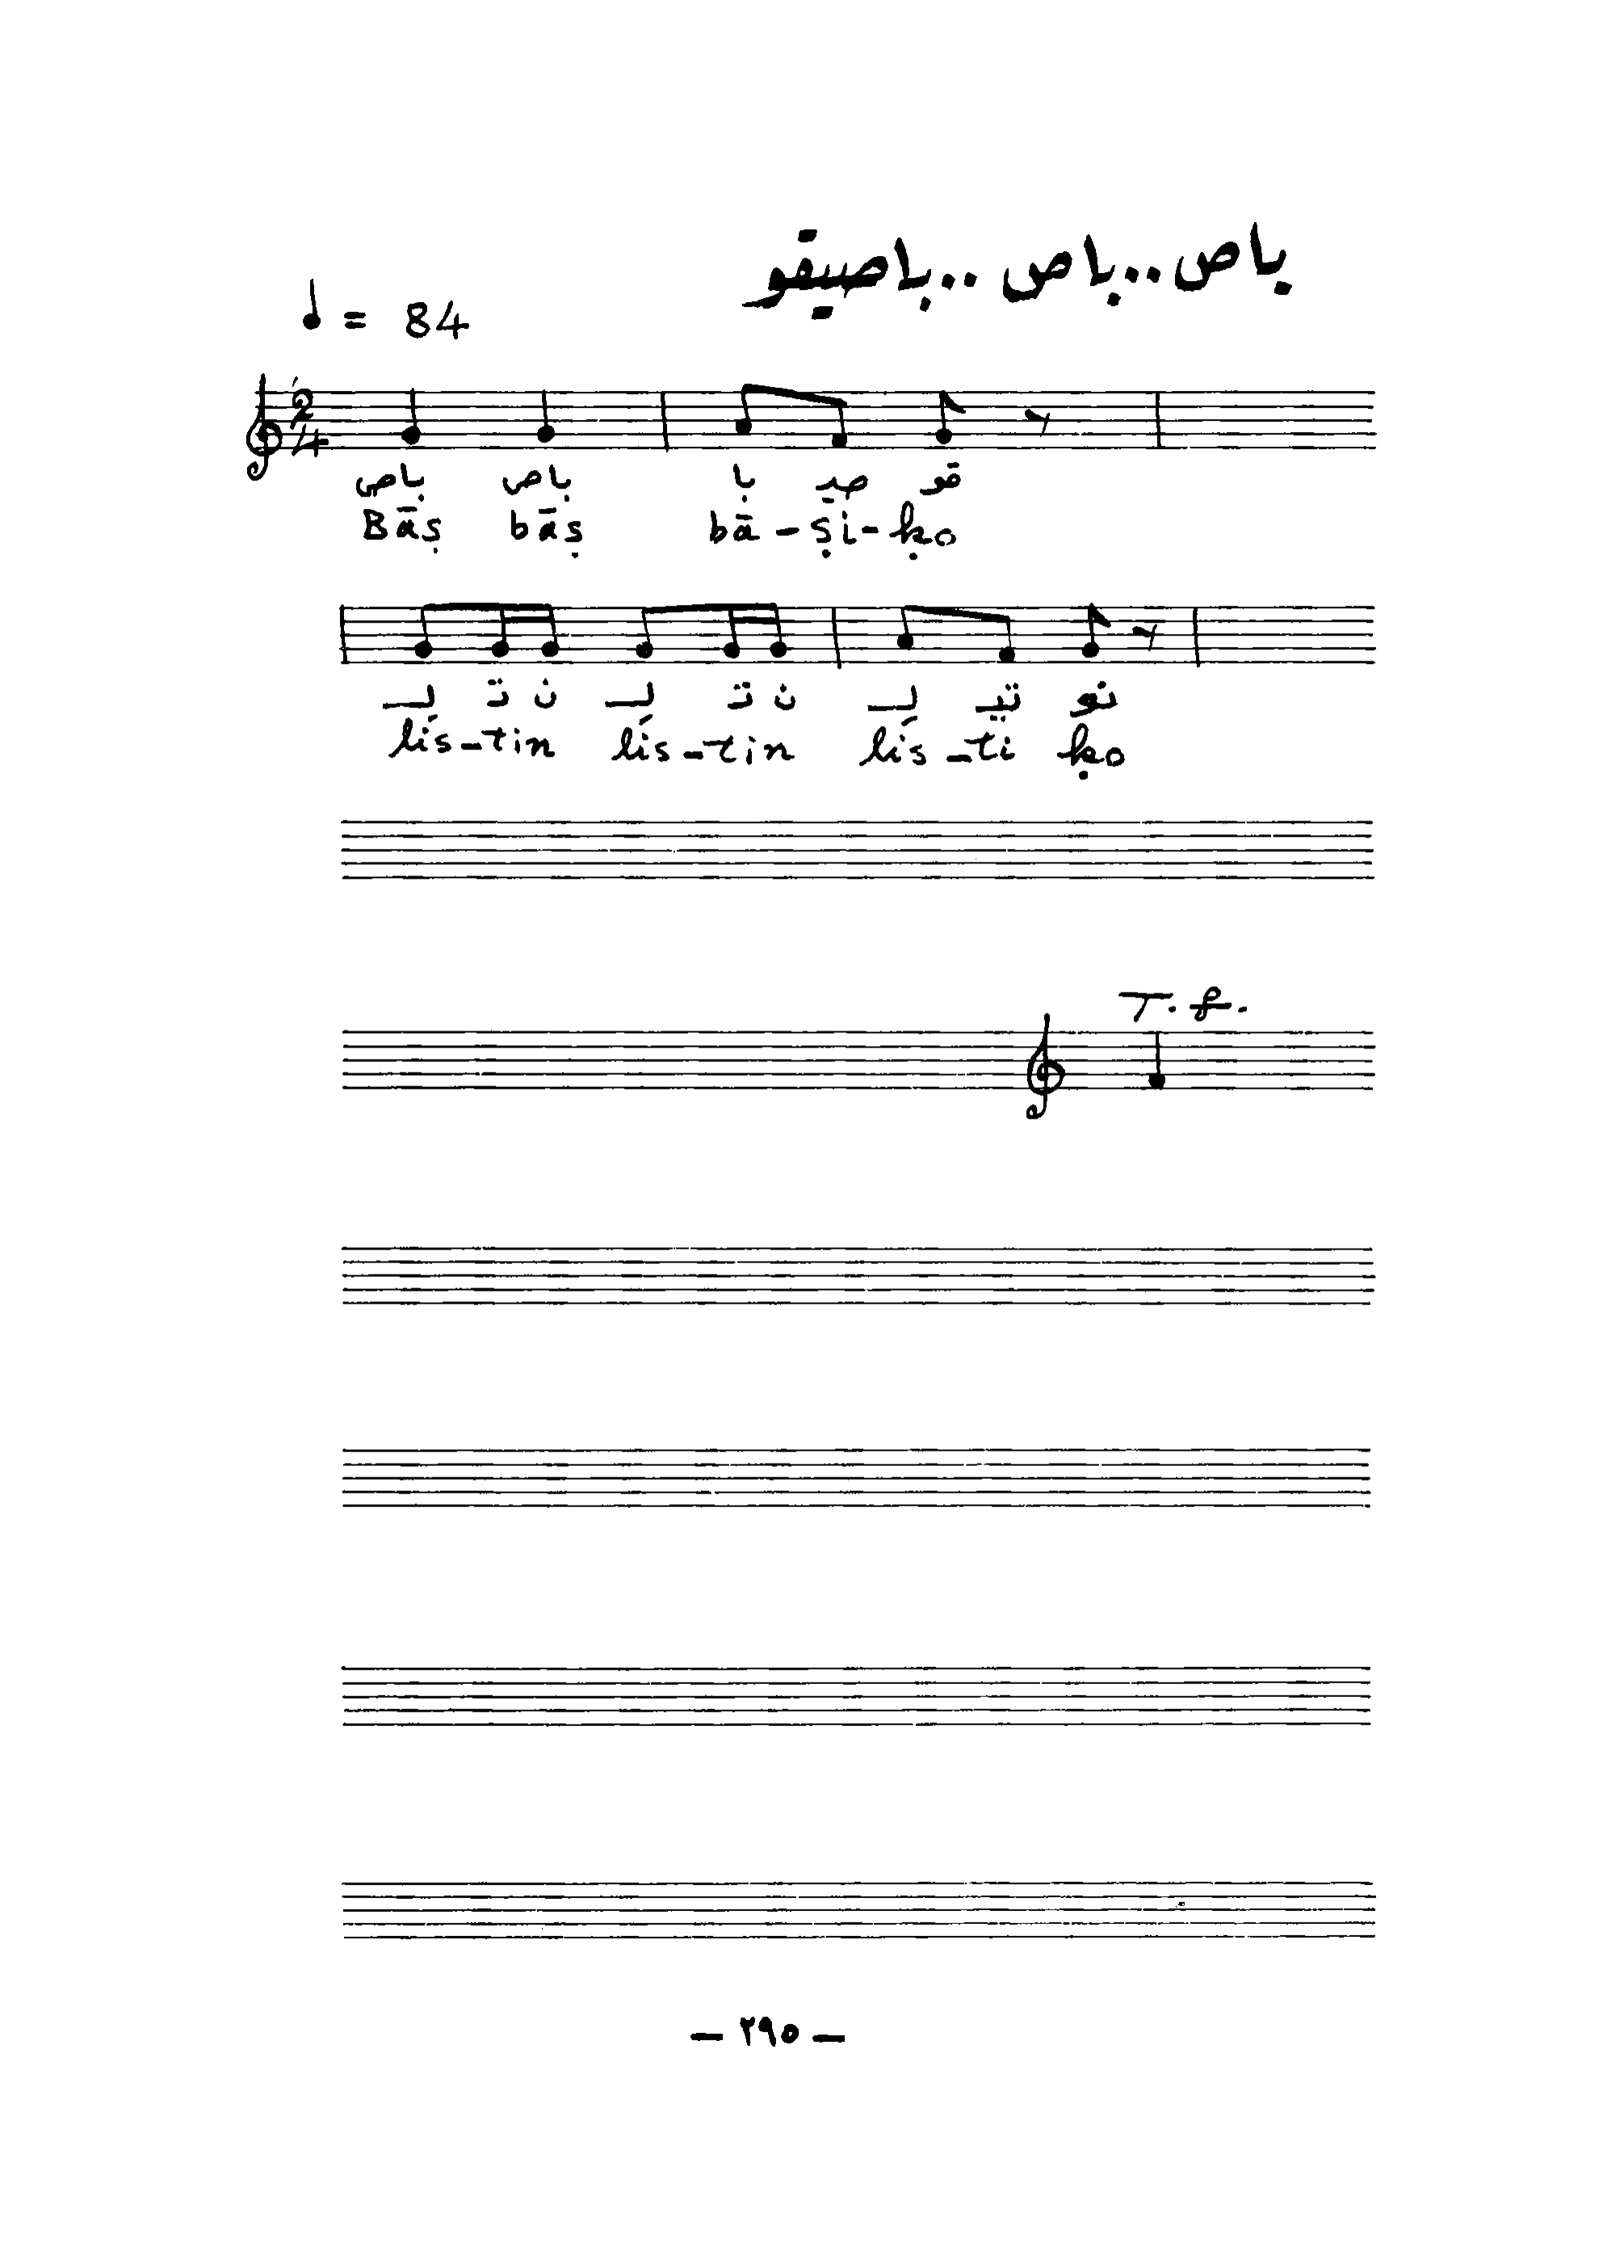 باص..باص..باصيقو
= 84
2/4
باص باص با صيـ قو
Bāṣ bāṣ bā-ṣi-ḳo
لـ تـ ن لـ تـ ن لـ تيـ قو
lis-tin lis-tin lis-ti ḳo
T. f.
— ٢٩٥ —